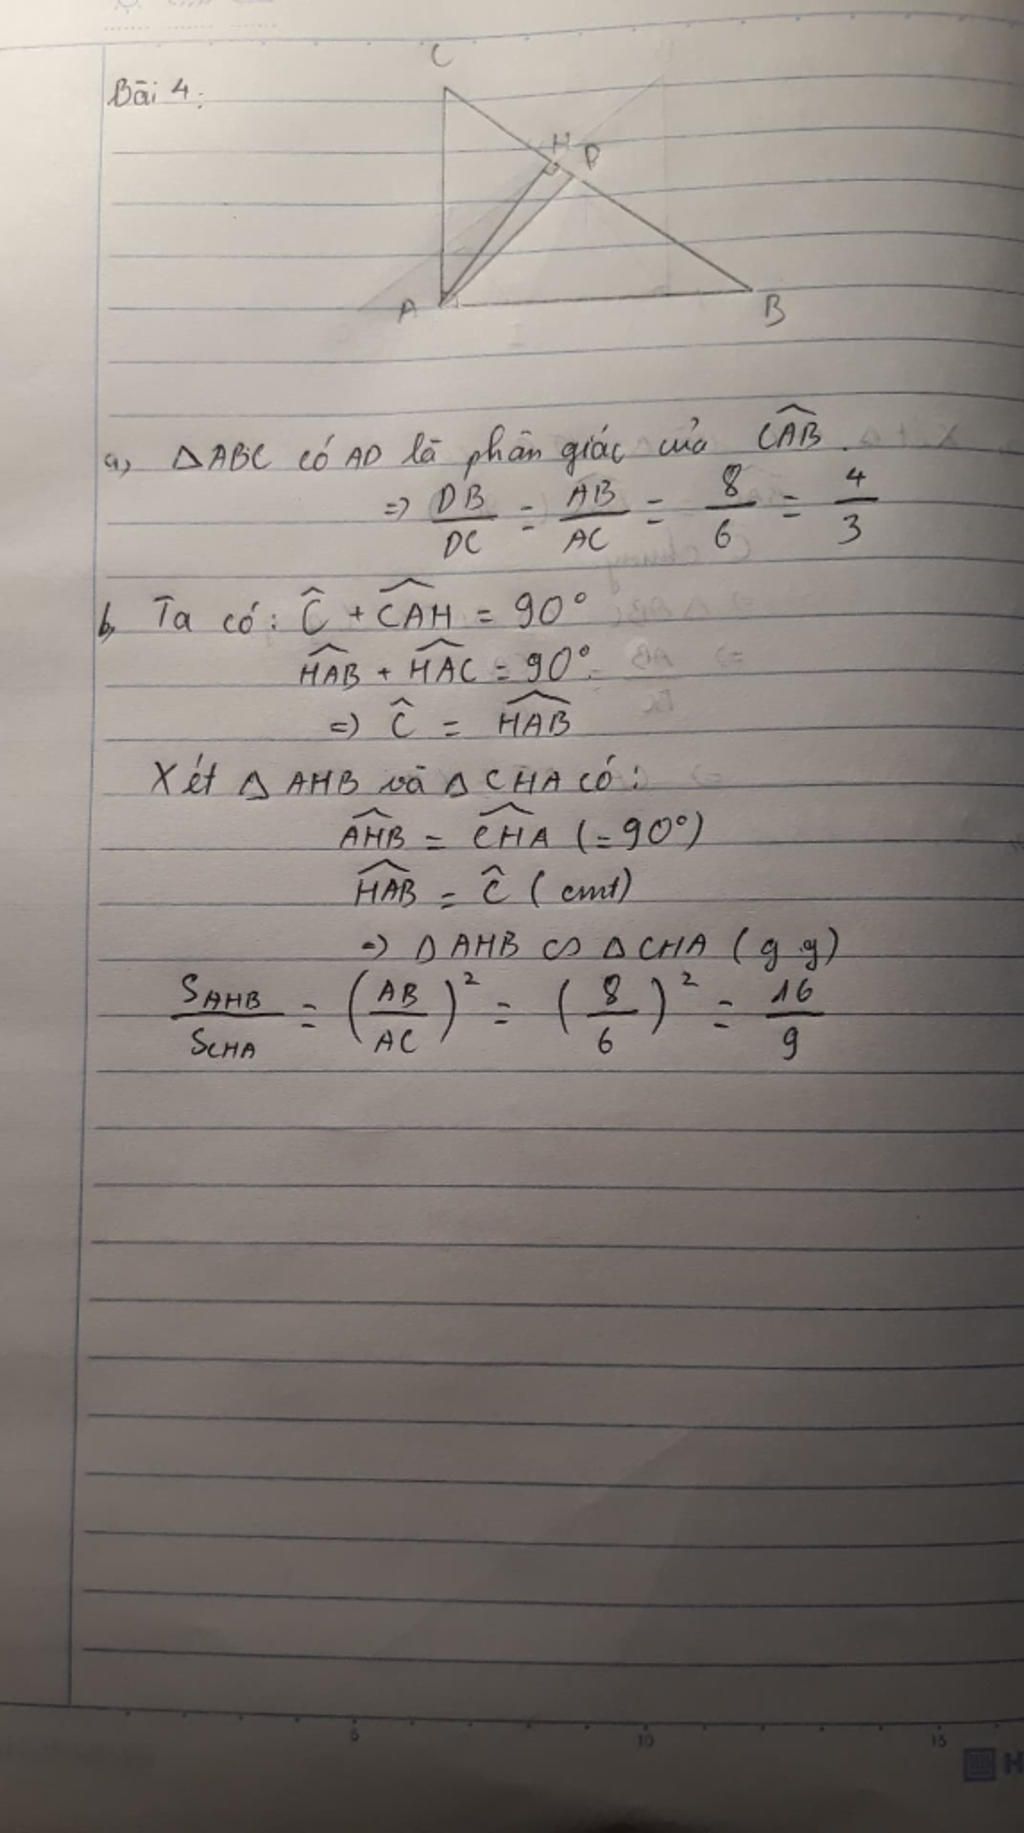 Bài 4:
C
H
D
A
B
a, △ABC có AD là phân giác của \widehat{CAB}.
=> \frac{DB}{DC} = \frac{AB}{AC} = \frac{8}{6} = \frac{4}{3}
b, Ta có: \widehat{C} + \widehat{CAH} = 90°
\widehat{HAB} + \widehat{HAC} = 90°.
=> \widehat{C} = \widehat{HAB}
Xét △AHB và △CHA có:
\widehat{AHB} = \widehat{CHA} (=90°)
\widehat{HAB} = \widehat{C} (cmt)
=> △AHB ∽ △CHA (g.g)
\frac{S_{AHB}}{S_{CHA}} = (\frac{AB}{AC})^2 = (\frac{8}{6})^2 = \frac{16}{9}
5 10 15
H